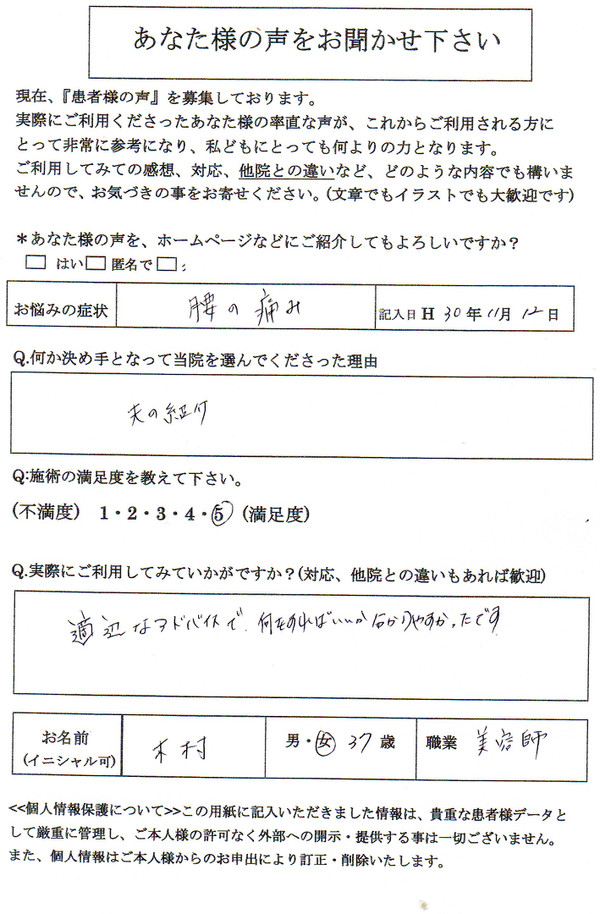 あなた様の声をお聞かせ下さい
現在、『患者様の声』を募集しております。
実際にご利用くださったあなた様の率直な声が、これからご利用される方に
とって非常に参考になり、私どもにとっても何よりの力となります。
ご利用してみての感想、対応、他院との違いなど、どのような内容でも構いま
せんので、お気づきの事をお寄せください。(文章でもイラストでも大歓迎です)
＊あなた様の声を、ホームページなどにご紹介してもよろしいですか？
□ はい □ 匿名で □
お悩みの症状 腰の痛み 記入日 H 30 年 11 月 12 日
Q.何か決め手となって当院を選んでくださった理由
夫の紹介
Q:施術の満足度を教えて下さい。
(不満度) 1・2・3・4・5 (満足度)
Q.実際にご利用してみていかがですか？(対応、他院との違いもあれば歓迎)
適切なアドバイスで、何をすればいいか分かりやすかったです
お名前 木村 男・女 37 歳 職業 美容師
(イニシャル可)
<<個人情報保護について>>この用紙に記入いただきました情報は、貴重な患者様データと
して厳重に管理し、ご本人様の許可なく外部への開示・提供する事は一切ございません。
また、個人情報はご本人様からのお申出により訂正・削除いたします。